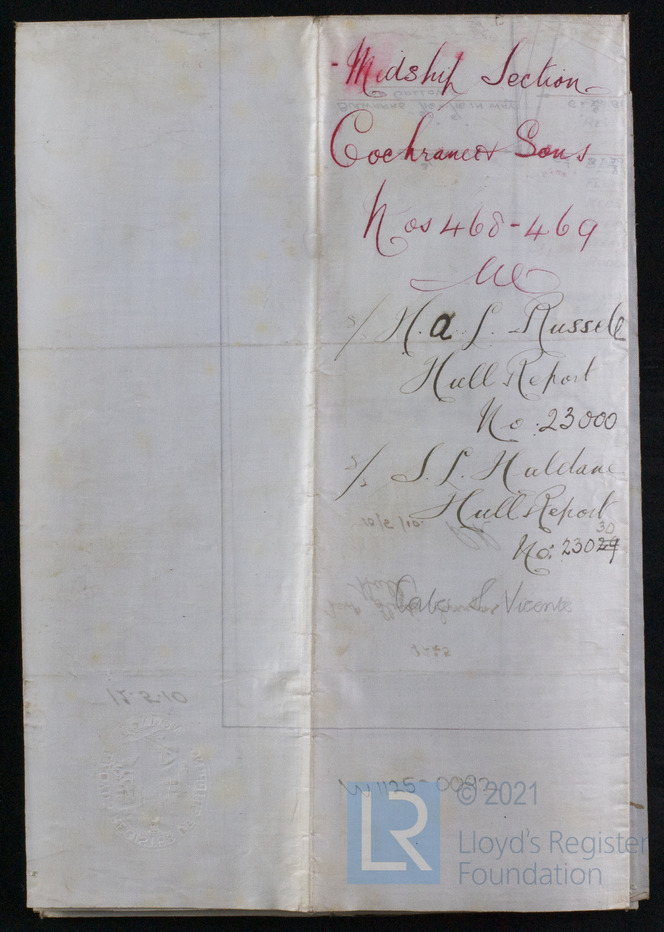 Midship Section
Cochrane & Sons
Nos 468-469
S/S H. A. L. Russell
Hull Report
No: 23000
S/S S. L. Haldane
Hull Report
30
No: 23029
10/5/10.
S. Vicente
12.5.10
W1125-0092
LR
© 2021
Lloyd's Register
Foundation